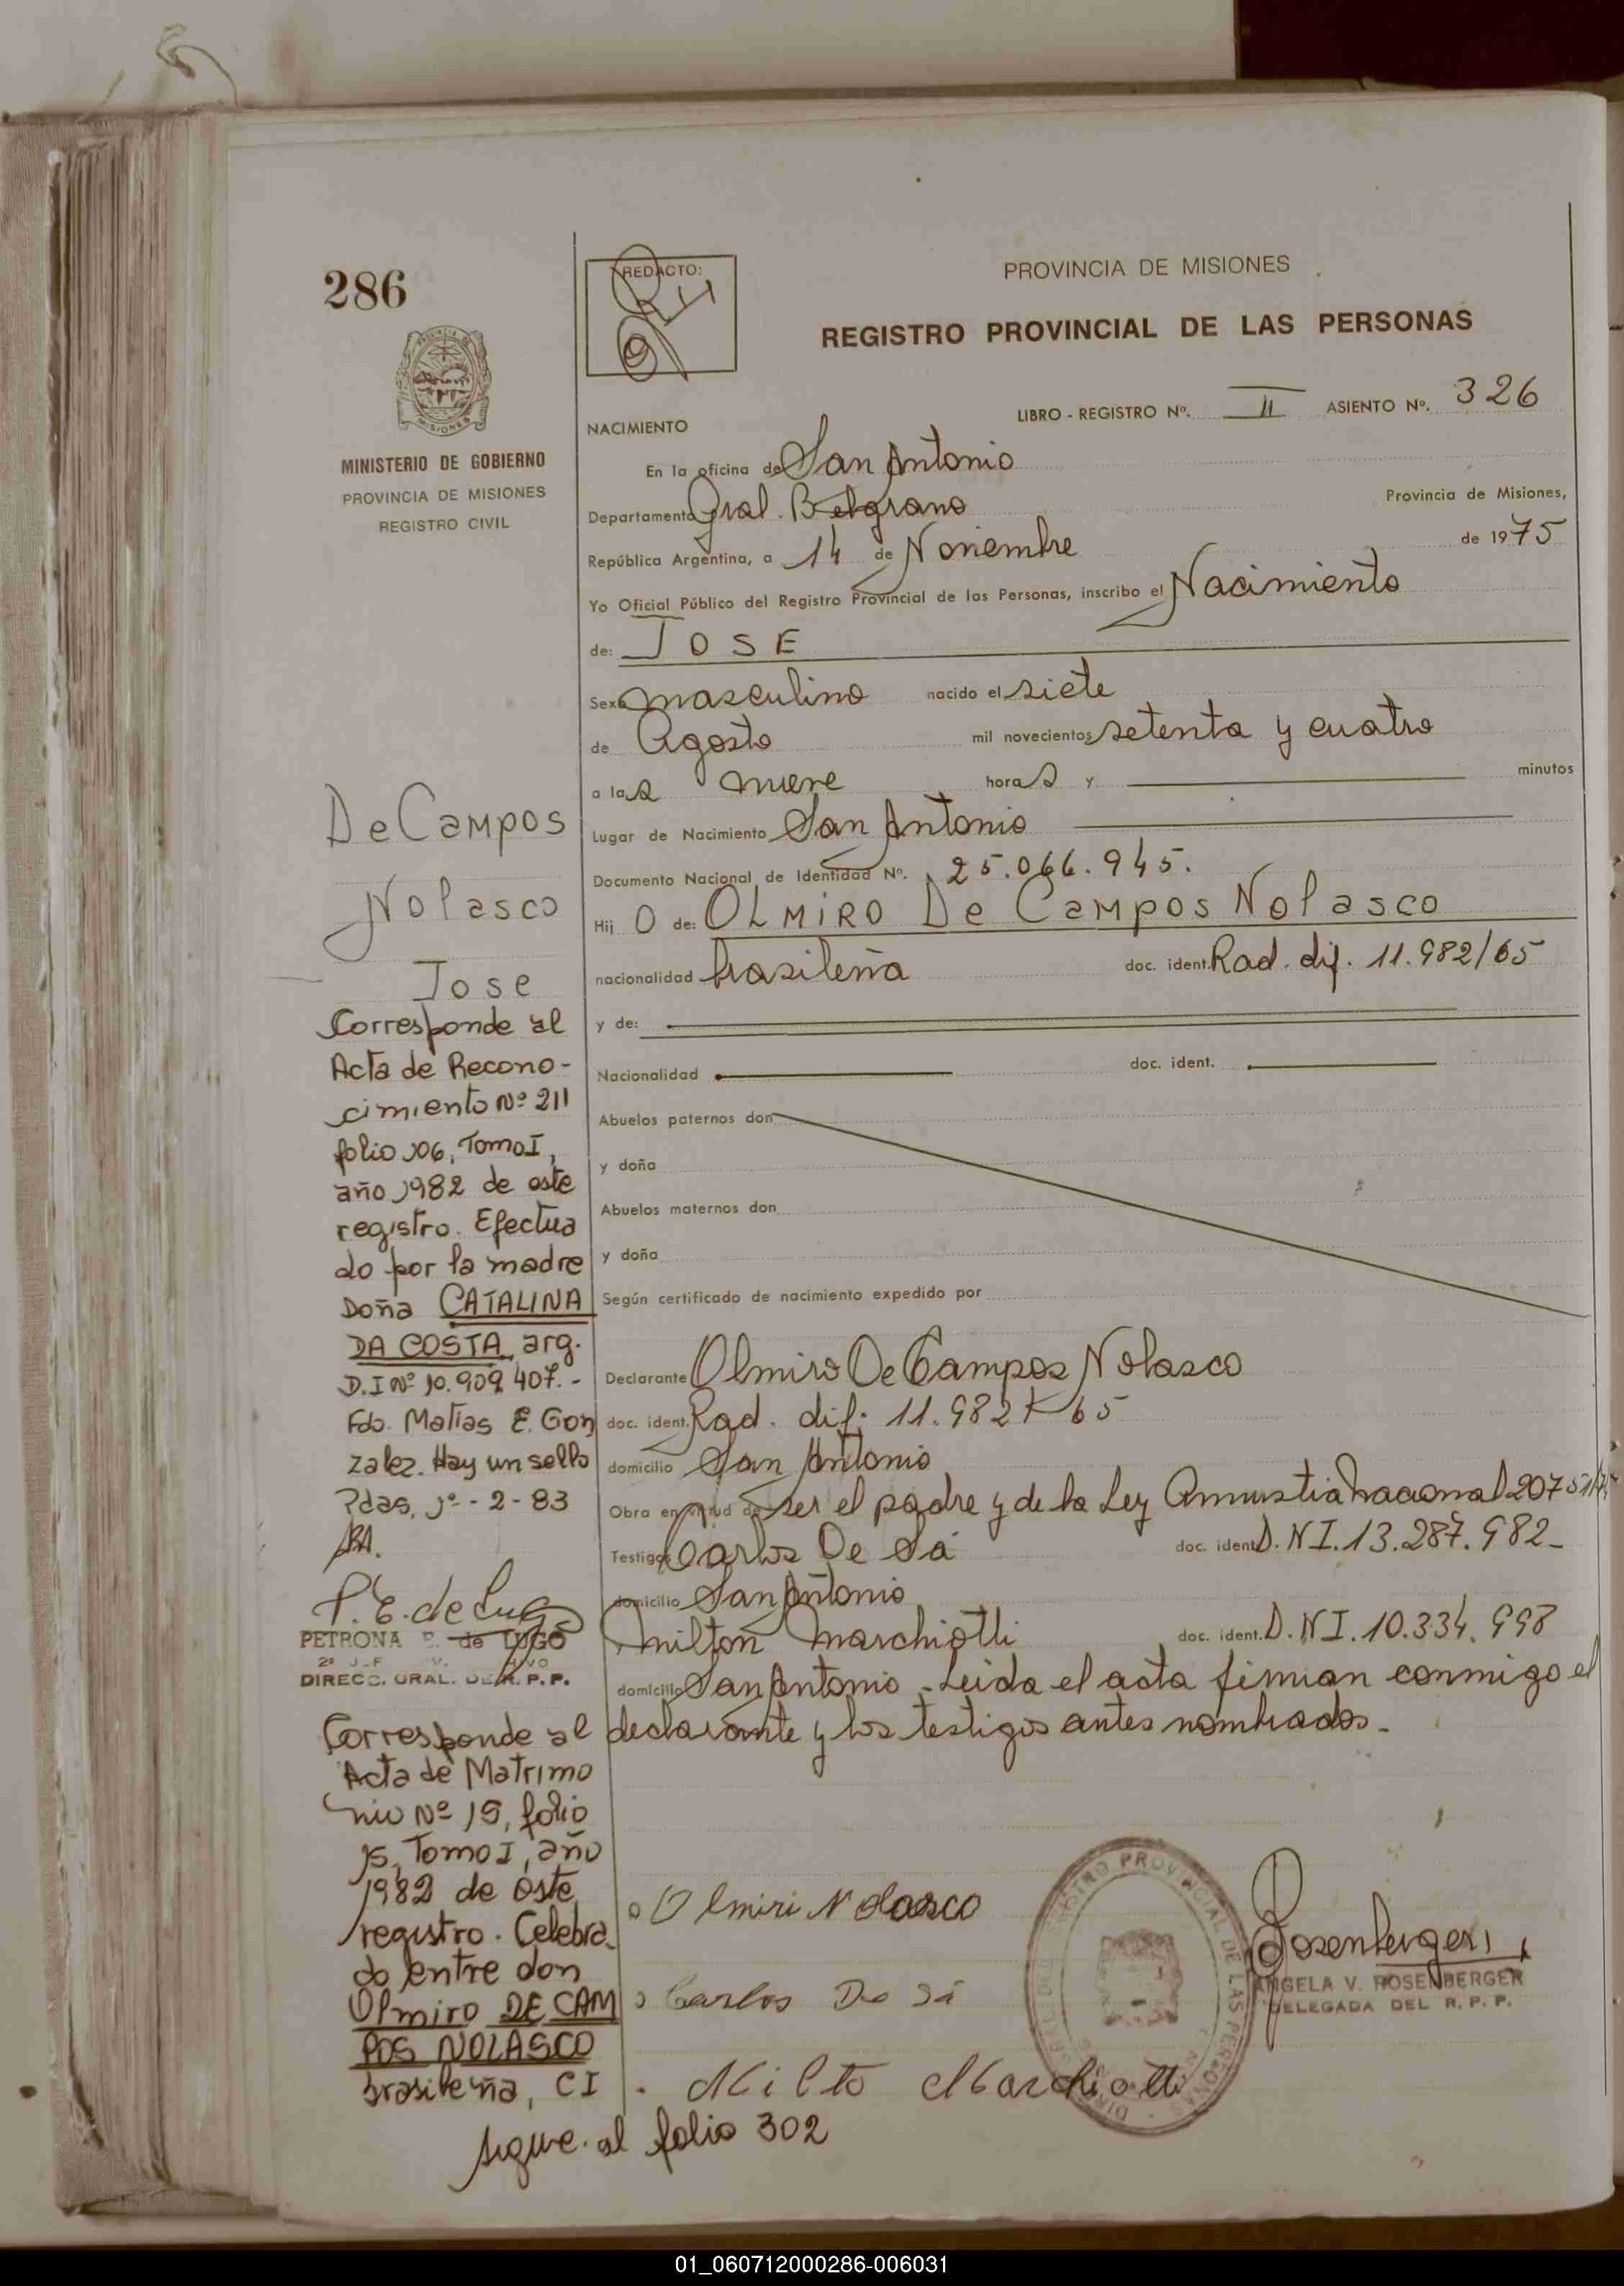 286
PROVINCIA DE MISIONES
REGISTRO PROVINCIAL DE LAS PERSONAS
REDACTO:
MINISTERIO DE GOBIERNO
PROVINCIA DE MISIONES
REGISTRO CIVIL
LIBRO - REGISTRO Nº. II ASIENTO Nº. 326
NACIMIENTO
En la oficina de San Antonio
Departamento Gral. Belgrano Provincia de Misiones,
República Argentina, a 14 de Noviembre de 1975
Yo Oficial Público del Registro Provincial de las Personas, inscribo el Nacimiento
de: JOSE
Sexo masculino nacido el siete
de Agosto mil novecientos setenta y cuatro
a las nueve horas y minutos
Lugar de Nacimiento San Antonio
Documento Nacional de Identidad Nº. 25.066.945.
Hijo de: OLMIRO De Campos Nolasco
nacionalidad brasileña doc. ident. Rad. dif. 11.982/65
y de:
Nacionalidad doc. ident.
Abuelos paternos don
y doña
Abuelos maternos don
y doña
Según certificado de nacimiento expedido por
Declarante Olmiro De Campos Nolasco
doc. ident. Rad. dif. 11.982 65
domicilio San Antonio
Obra en virtud de ser el padre y de la Ley Amnustia Nacional 20751
Testigos Carlos De Sá doc. ident. D.N.I. 13.287.982-
domicilio San Antonio
Milton Marchiotti doc. ident. D.N.I. 10.334.998
domicilio San Antonio - Leida el acta firman conmigo el
declarante y los testigos antes nombrados.-
De Campos
Nolasco
Jose
Corresponde al
Acta de Recono-
cimiento Nº 211
folio 106, Tomo I,
año 1982 de este
registro. Efectua
do por la madre
Doña CATALINA
DA COSTA, arg.
D.I Nº 10.909.407.-
Fdo. Matias E. Gon
zalez. Hay un sello
Pdas, 1º - 2 - 83
P. E. de Lugo
PETRONA E. de LUGO
DIRECC. GRAL. DEL R. P. P.
Corresponde al
Acta de Matrimo
nio Nº 15, folio
15, Tomo I, año
1982 de este
registro. Celebra-
do entre don
Olmiro DE CAM
POS NOLASCO
brasileña, CI
sigue al folio 302
Olmiri Nolasco
Carlos De Sá
Milto Marchiotti
Rosenberger
ANGELA V. ROSENBERGER
DELEGADA DEL R. P. P.
REGISTRO PROVINCIAL DE LAS PERSONAS
01_060712000286-006031